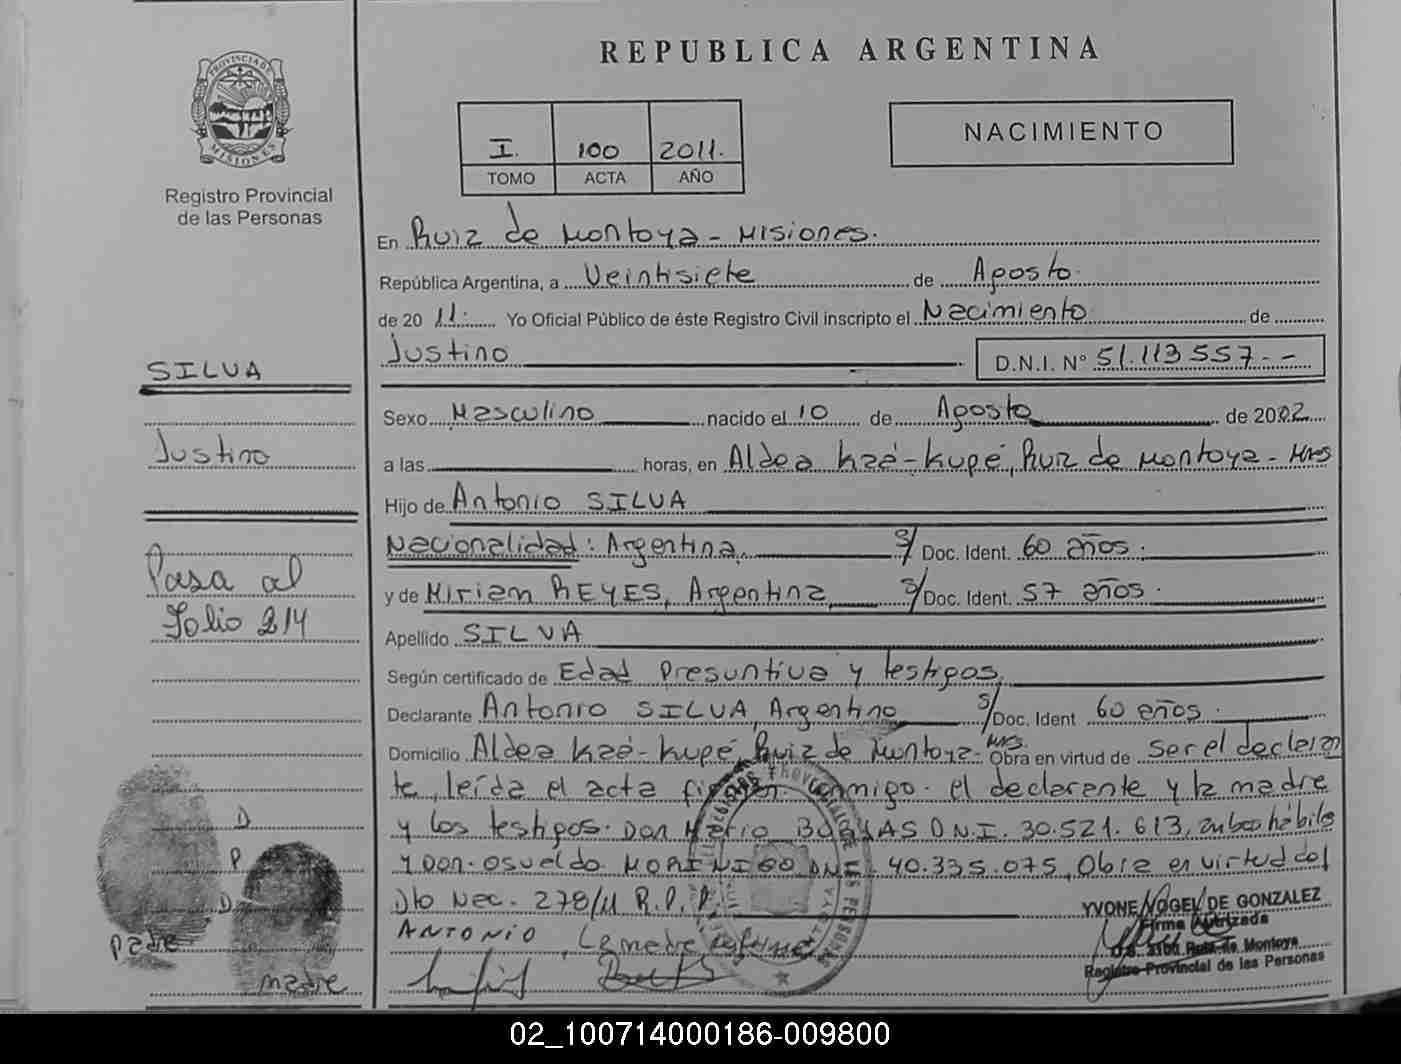 REPUBLICA ARGENTINA
PROVINCIA DE
MISIONES
Registro Provincial
de las Personas
I. 100 2011.
TOMO ACTA AÑO
NACIMIENTO
En Ruiz de Montoya - Misiones.
República Argentina, a Veintisiete de Agosto.
de 20 11. Yo Oficial Público de éste Registro Civil inscripto el Nacimiento de
Justino D.N.I. Nº 51.113 557.--
SILVA
Justino
Pasa al
Folio 214
Sexo Masculino nacido el 10 de Agosto de 2002
a las horas, en Aldea Kaá-Kupé, Ruiz de Montoya - Mns
Hijo de Antonio SILVA
Nacionalidad: Argentina. S/ Doc. Ident. 60 años.
y de Miriam REYES, Argentina S/ Doc. Ident. 57 años.
Apellido SILVA
Según certificado de Edad Presuntiva y testigos,
Declarante Antonio SILVA, Argentino S/ Doc. Ident 60 años.
Domicilio Aldea Kaá-Kupé, Ruiz de Montoya- Mns. Obra en virtud de ser el declaran
te, leída el acta conmigo. el declarante y la madre
y los testigos. Don Mario D.N.I. 30.521.613, ambos hábiles
y Don. Osvaldo MORINIGO DNI. 40.335.075, Obra en virtud del
Dto Nac. 278/11 R.P.P.
ANTONIO La madre
D
P
D
padre
madre
YVONE NOGEL DE GONZALEZ
Firma Autorizada
O.S. 3100 Ruiz de Montoya
Registro Provincial de las Personas
02_100714000186-009800